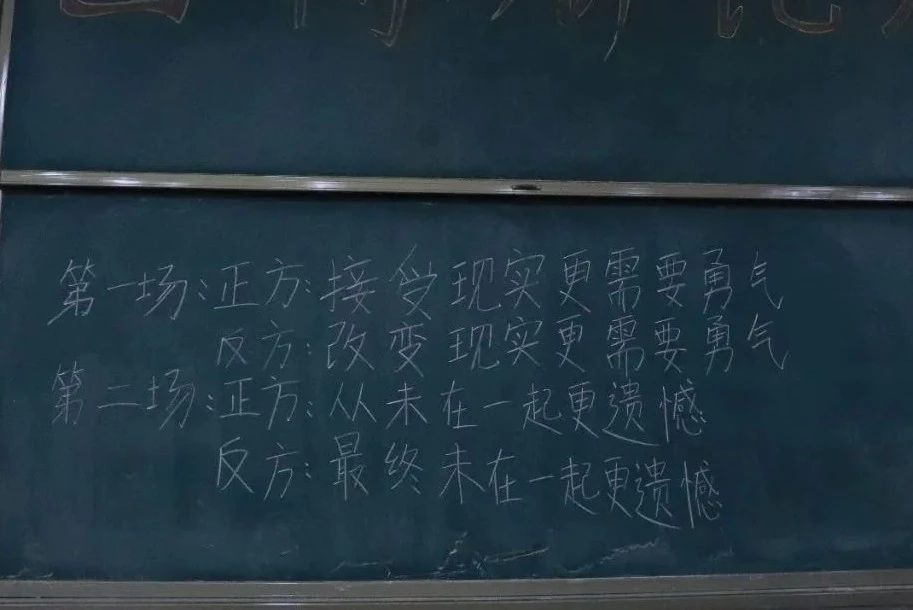 第一场:正方:接受现实更需要勇气
反方:改变现实更需要勇气
第二场:正方:从未在一起更遗憾
反方:最终未在一起更遗憾